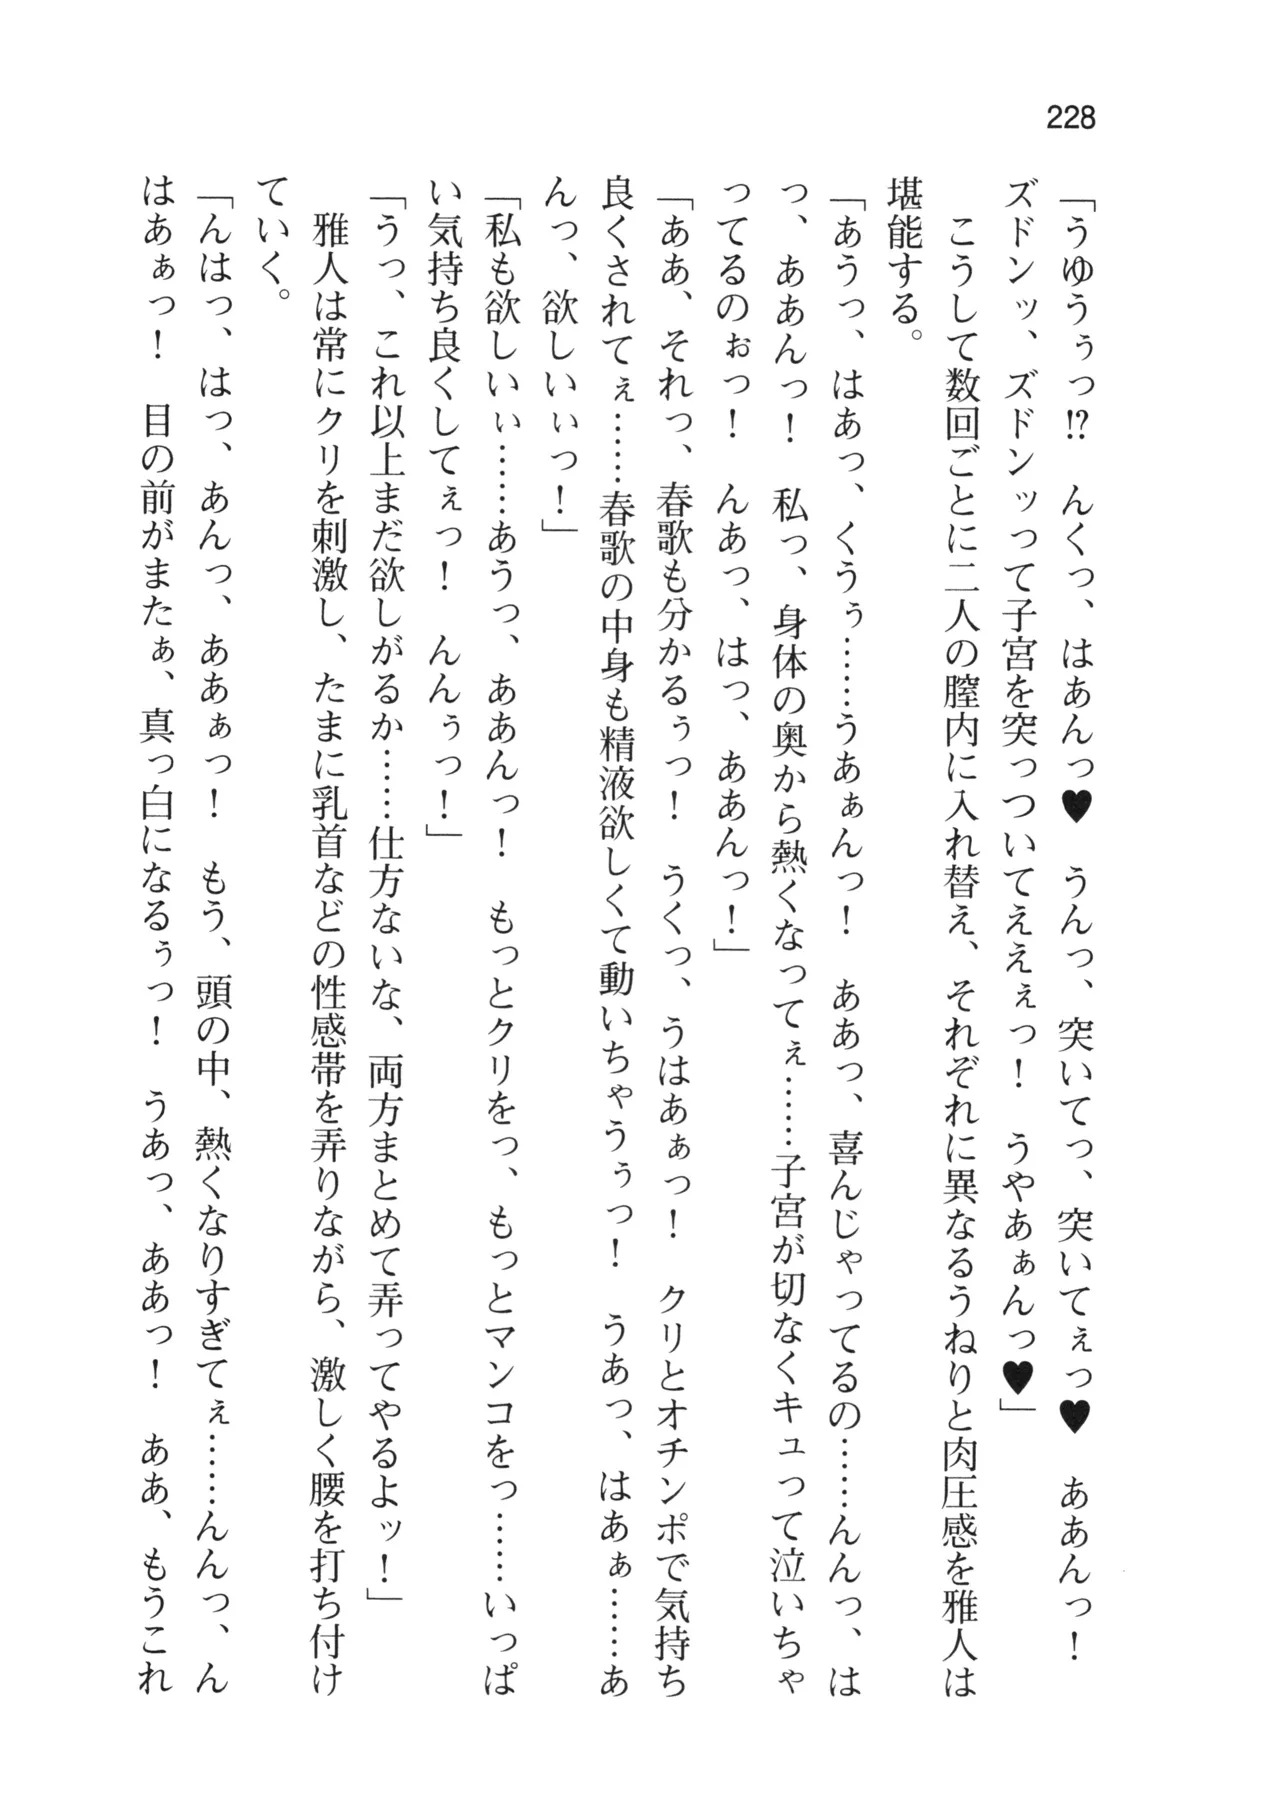 228
「うゆうぅっ⁉　んくっ、はあんっ♥　うんっ、突いてっ、突いてぇっ♥　ああんっ！
ズドンッ、ズドンッって子宮を突っついてええぇっ！　うやあぁんっ♥」
　こうして数回ごとに二人の膣内に入れ替え、それぞれに異なるうねりと肉圧感を雅人は
堪能する。
「あうっ、はあっ、くうぅ……うあぁんっ！　ああっ、喜んじゃってるの……んんっ、は
っ、ああんっ！　私っ、身体の奥から熱くなってぇ……子宮が切なくキュって泣いちゃ
ってるのぉっ！　んあっ、はっ、ああんっ！」
「ああ、それっ、春歌も分かるぅっ！　うくっ、うはあぁっ！　クリとオチンポで気持ち
良くされてぇ……春歌の中身も精液欲しくて動いちゃうぅっ！　うあっ、はあぁ……あ
んっ、欲しいぃっ！」
「私も欲しいぃ……あうっ、ああんっ！　もっとクリをっ、もっとマンコをっ……いっぱ
い気持ち良くしてぇっ！　んんぅっ！」
「うっ、これ以上まだ欲しがるか……仕方ないな、両方まとめて弄ってやるよッ！」
　雅人は常にクリを刺激し、たまに乳首などの性感帯を弄りながら、激しく腰を打ち付け
ていく。
「んはっ、はっ、あんっ、ああぁっ！　もう、頭の中、熱くなりすぎてぇ……んんっ、ん
はあぁっ！　目の前がまたぁ、真っ白になるぅっ！　うあっ、ああっ！　ああ、もうこれ